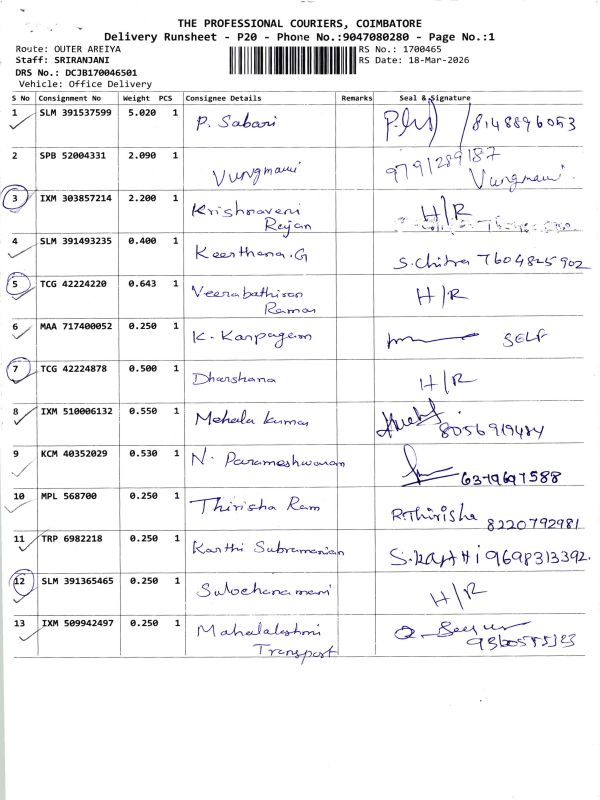 THE PROFESSIONAL COURIERS, COIMBATORE
Delivery Runsheet - P20 - Phone No.:9047080280 - Page No.:1
Route: OUTER AREIYA RS No.: 1700465
Staff: SRIRANJANI RS Date: 18-Mar-2026
DRS No.: DCJB170046501
Vehicle: Office Delivery
S No Consignment No Weight PCS Consignee Details Remarks Seal & Signature
1 SLM 391537599 5.020 1 P. Sabari 8148896053
2 SPB 52004331 2.090 1 9791289187
3 IXM 303857214 2.200 1 Krishnaveni H/R
Rajan
4 SLM 391493235 0.400 1 Keerthana.G S.Chitra 7604825902
5 TCG 42224220 0.643 1 Veerabathiran H/R
Raman
6 MAA 717400052 0.250 1 K. Karpagam SELF
7 TCG 42224878 0.500 1 Dharshana H/R
8 IXM 510006132 0.550 1 Mehala Kumar
9 KCM 40352029 0.530 1 N. Parameshwaran 6379697588
10 MPL 568700 0.250 1 Thirisha Ram R.Thirisha 8220792981
11 TRP 6982218 0.250 1 Karthi Subramanian S.KARTHI 9698313392.
12 SLM 391365465 0.250 1 Sulochanamani H/R
13 IXM 509942497 0.250 1 Mahalakshmi
Transport